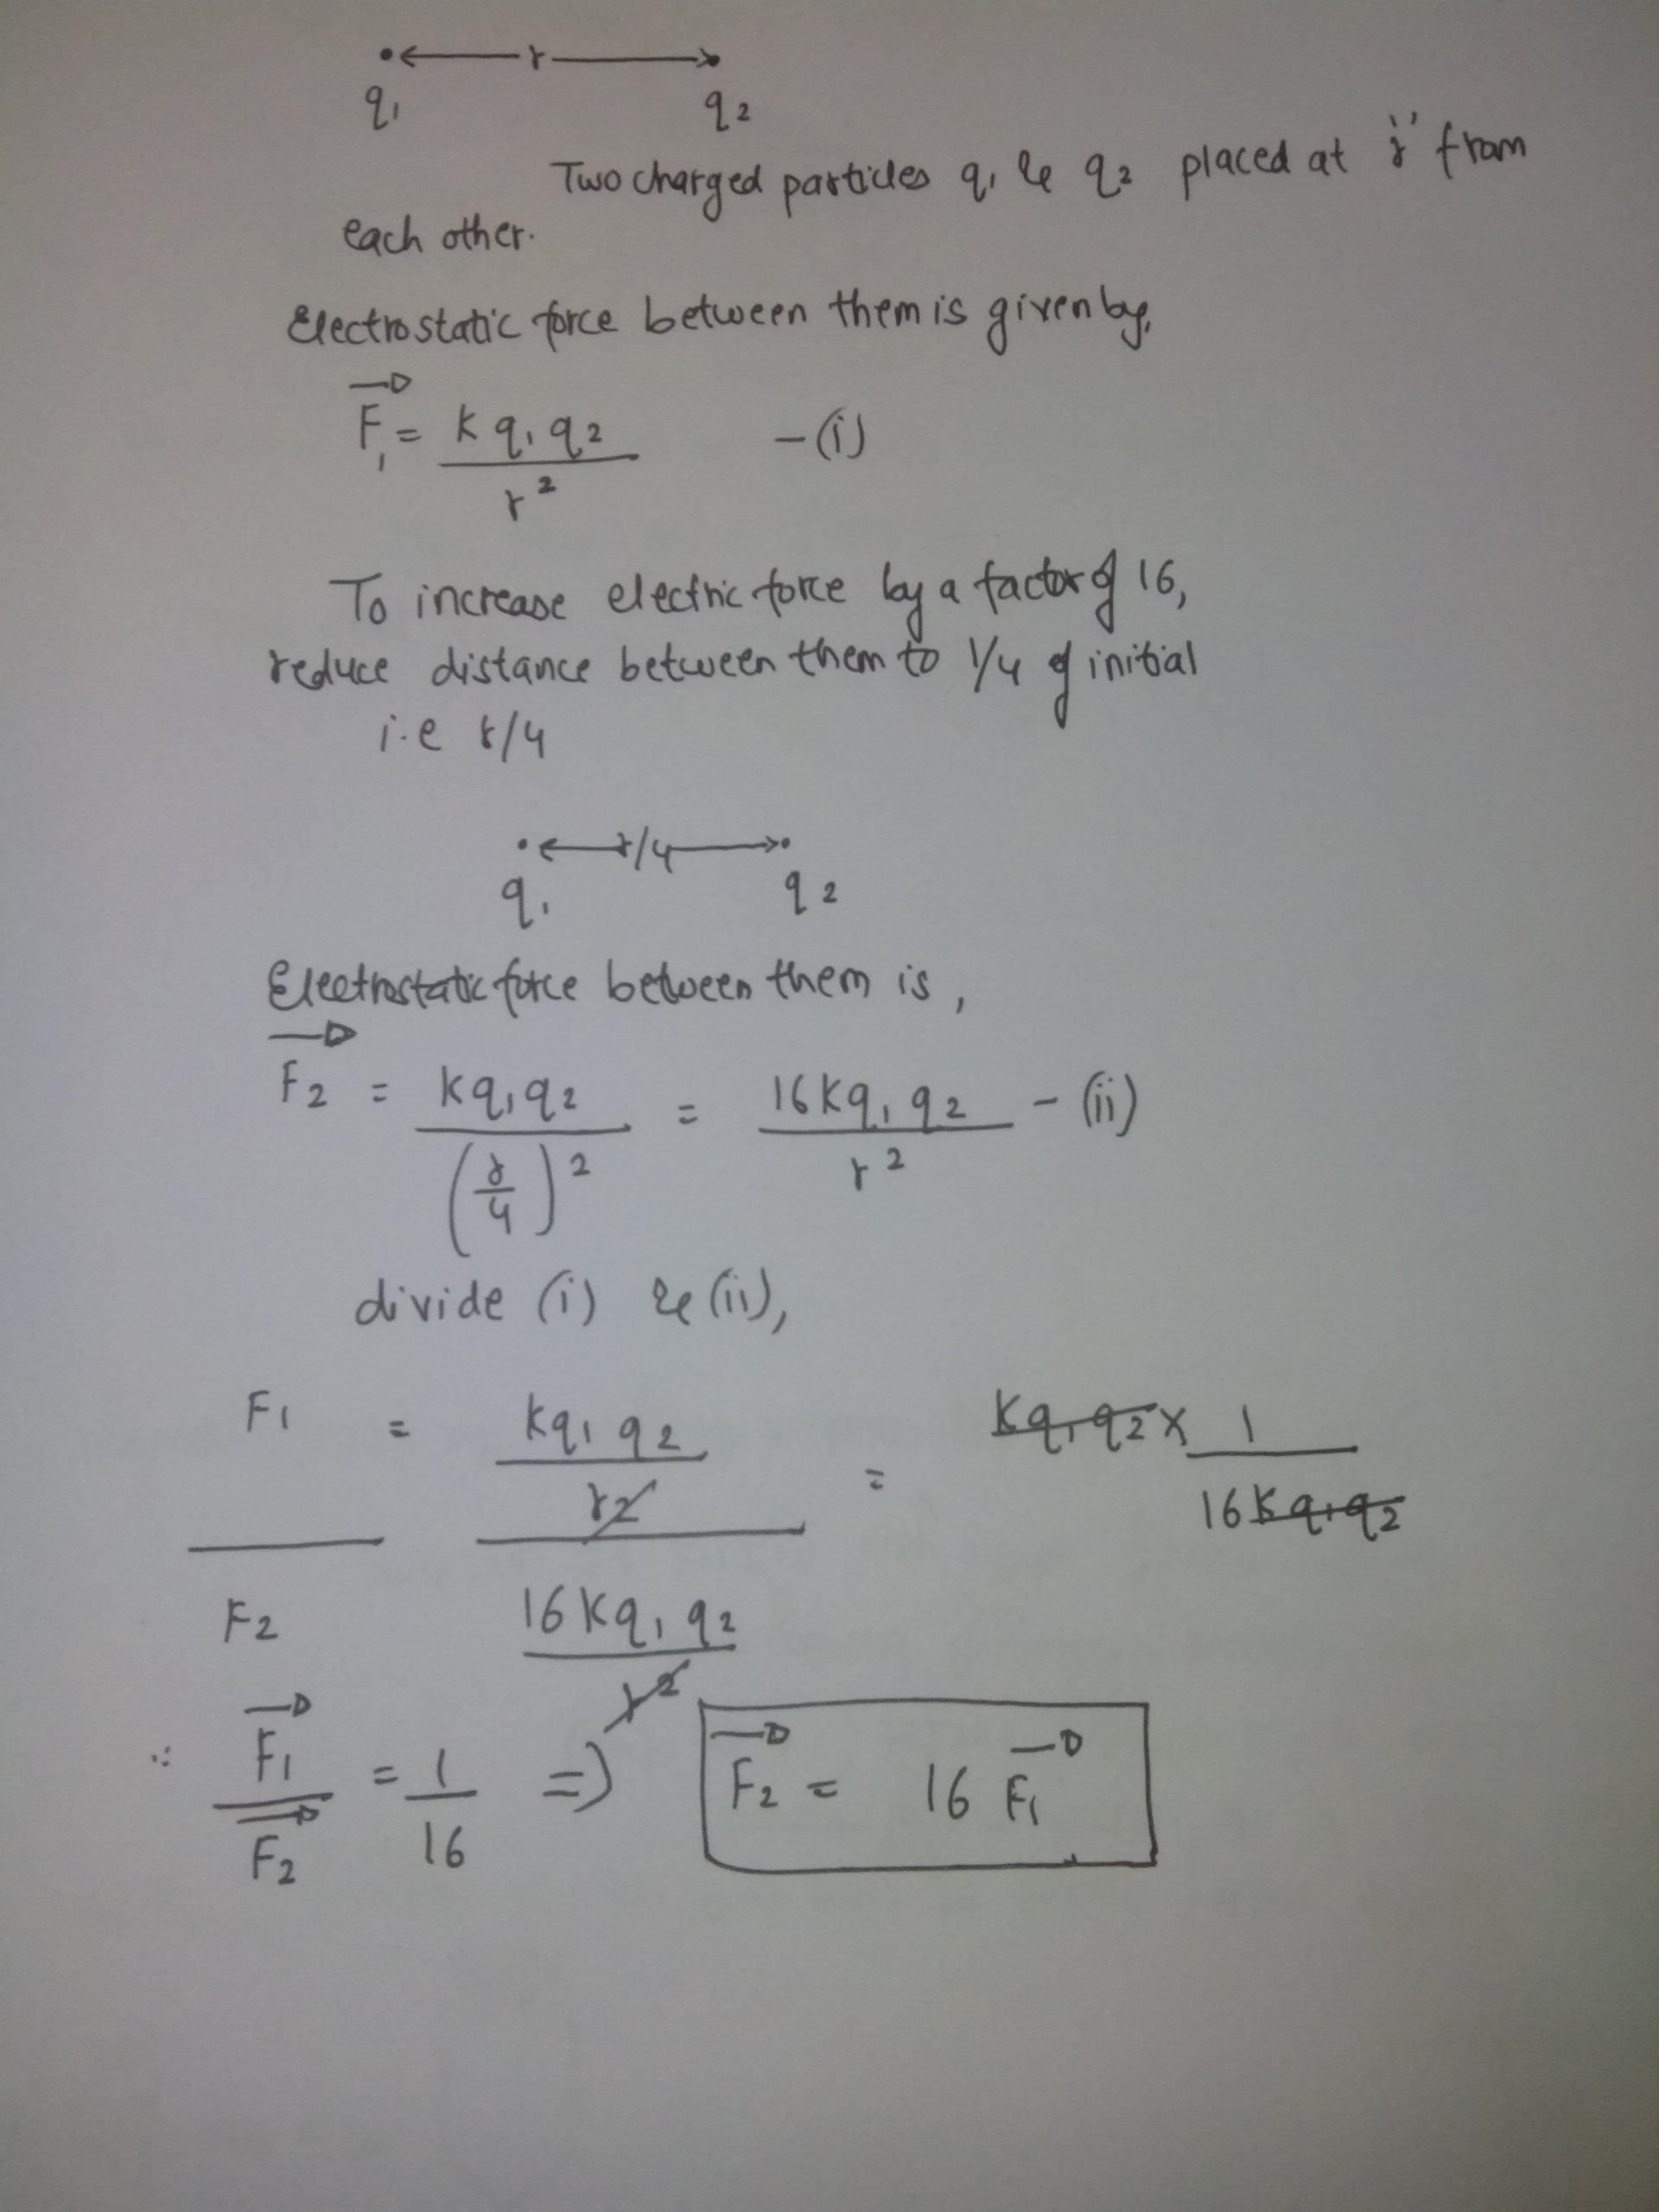 r
q₁ q₂
Two charged particles q₁ & q₂ placed at 'r' from
each other.
Electrostatic force between them is given by,
F₁ = K q₁ q₂ / r² - (i)
To increase electric force by a factor of 16,
reduce distance between them to 1/4 of initial
i.e r/4
r/4
q₁ q₂
Electrostatic force between them is,
F₂ = Kq₁q₂ / (r/4)² = 16Kq₁q₂ / r² - (ii)
divide (i) & (ii),
F₁ / F₂ = (Kq₁q₂ / r²) / (16Kq₁q₂ / r²) = Kq₁q₂ × 1 / 16Kq₁q₂
∵ F₁ / F₂ = 1 / 16 ⇒ F₂ = 16 F₁